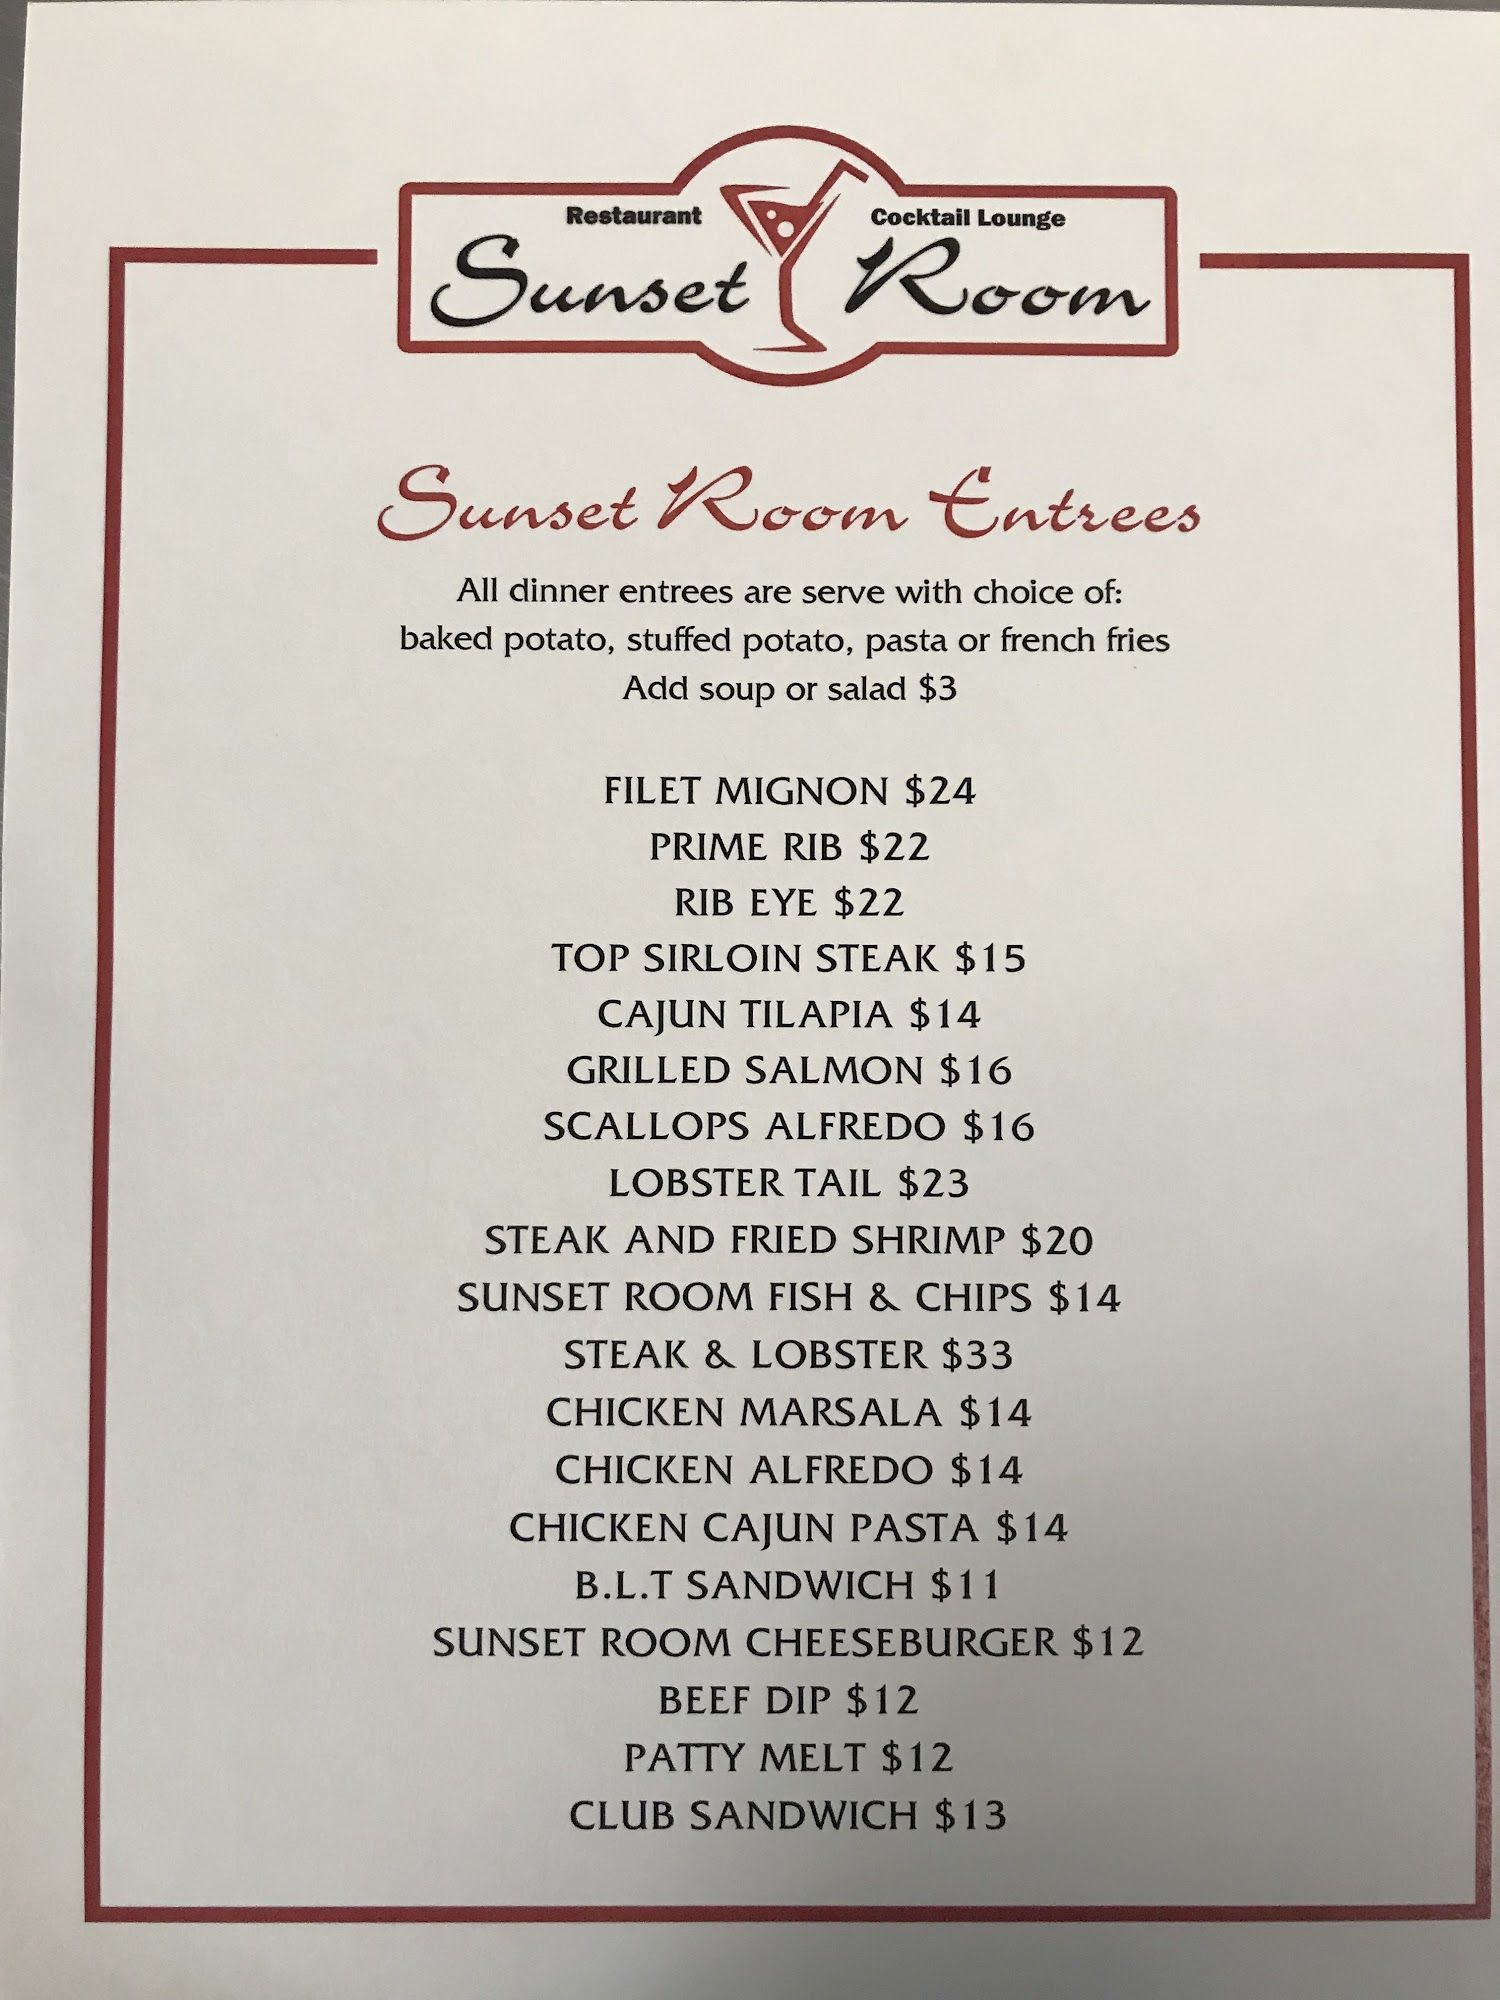 Restaurant Cocktail Lounge
Sunset Room
Sunset Room Entrees
All dinner entrees are serve with choice of:
baked potato, stuffed potato, pasta or french fries
Add soup or salad $3
FILET MIGNON $24
PRIME RIB $22
RIB EYE $22
TOP SIRLOIN STEAK $15
CAJUN TILAPIA $14
GRILLED SALMON $16
SCALLOPS ALFREDO $16
LOBSTER TAIL $23
STEAK AND FRIED SHRIMP $20
SUNSET ROOM FISH & CHIPS $14
STEAK & LOBSTER $33
CHICKEN MARSALA $14
CHICKEN ALFREDO $14
CHICKEN CAJUN PASTA $14
B.L.T SANDWICH $11
SUNSET ROOM CHEESEBURGER $12
BEEF DIP $12
PATTY MELT $12
CLUB SANDWICH $13